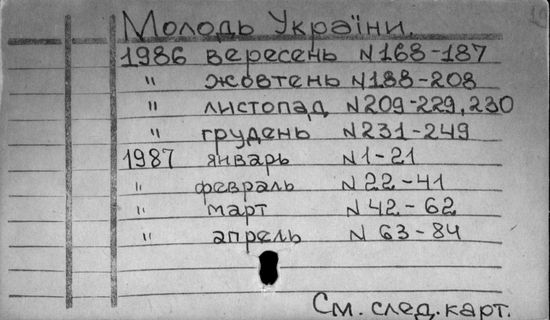 Молодь України.
1986 вересень N168-187
" жовтень N188-208
" листопад N209-229, 230
" грудень N231-249
1987 январь N1-21
" февраль N22-41
" март N42-62
" апрель N 63-84
См. след. карт.